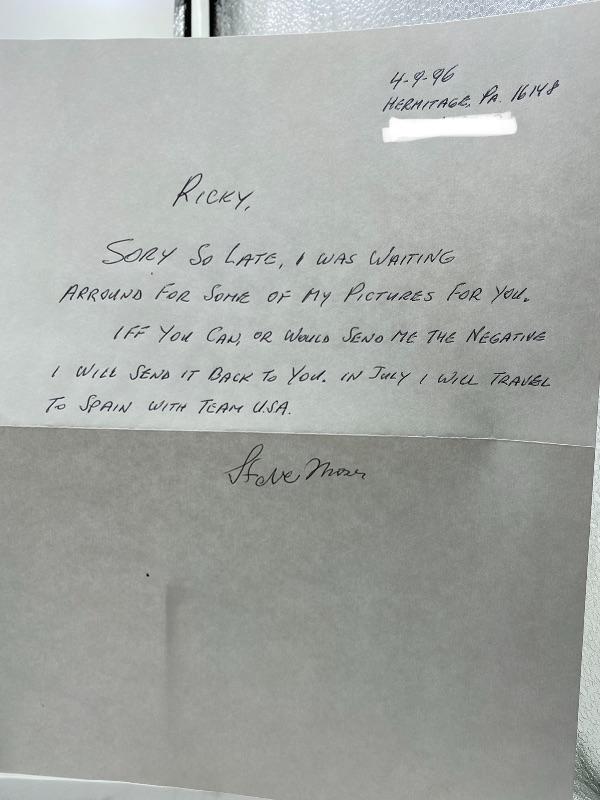 4-9-96
HERMITAGE, PA. 16148
RICKY,
SORY SO LATE, I WAS WAITING
ARROUND FOR SOME OF MY PICTURES FOR YOU.
IFF YOU CAN, OR WOULD SEND ME THE NEGATIVE
I WILL SEND IT BACK TO YOU. IN JULY I WILL TRAVEL
TO SPAIN WITH TEAM U.S.A.
Steve Moser